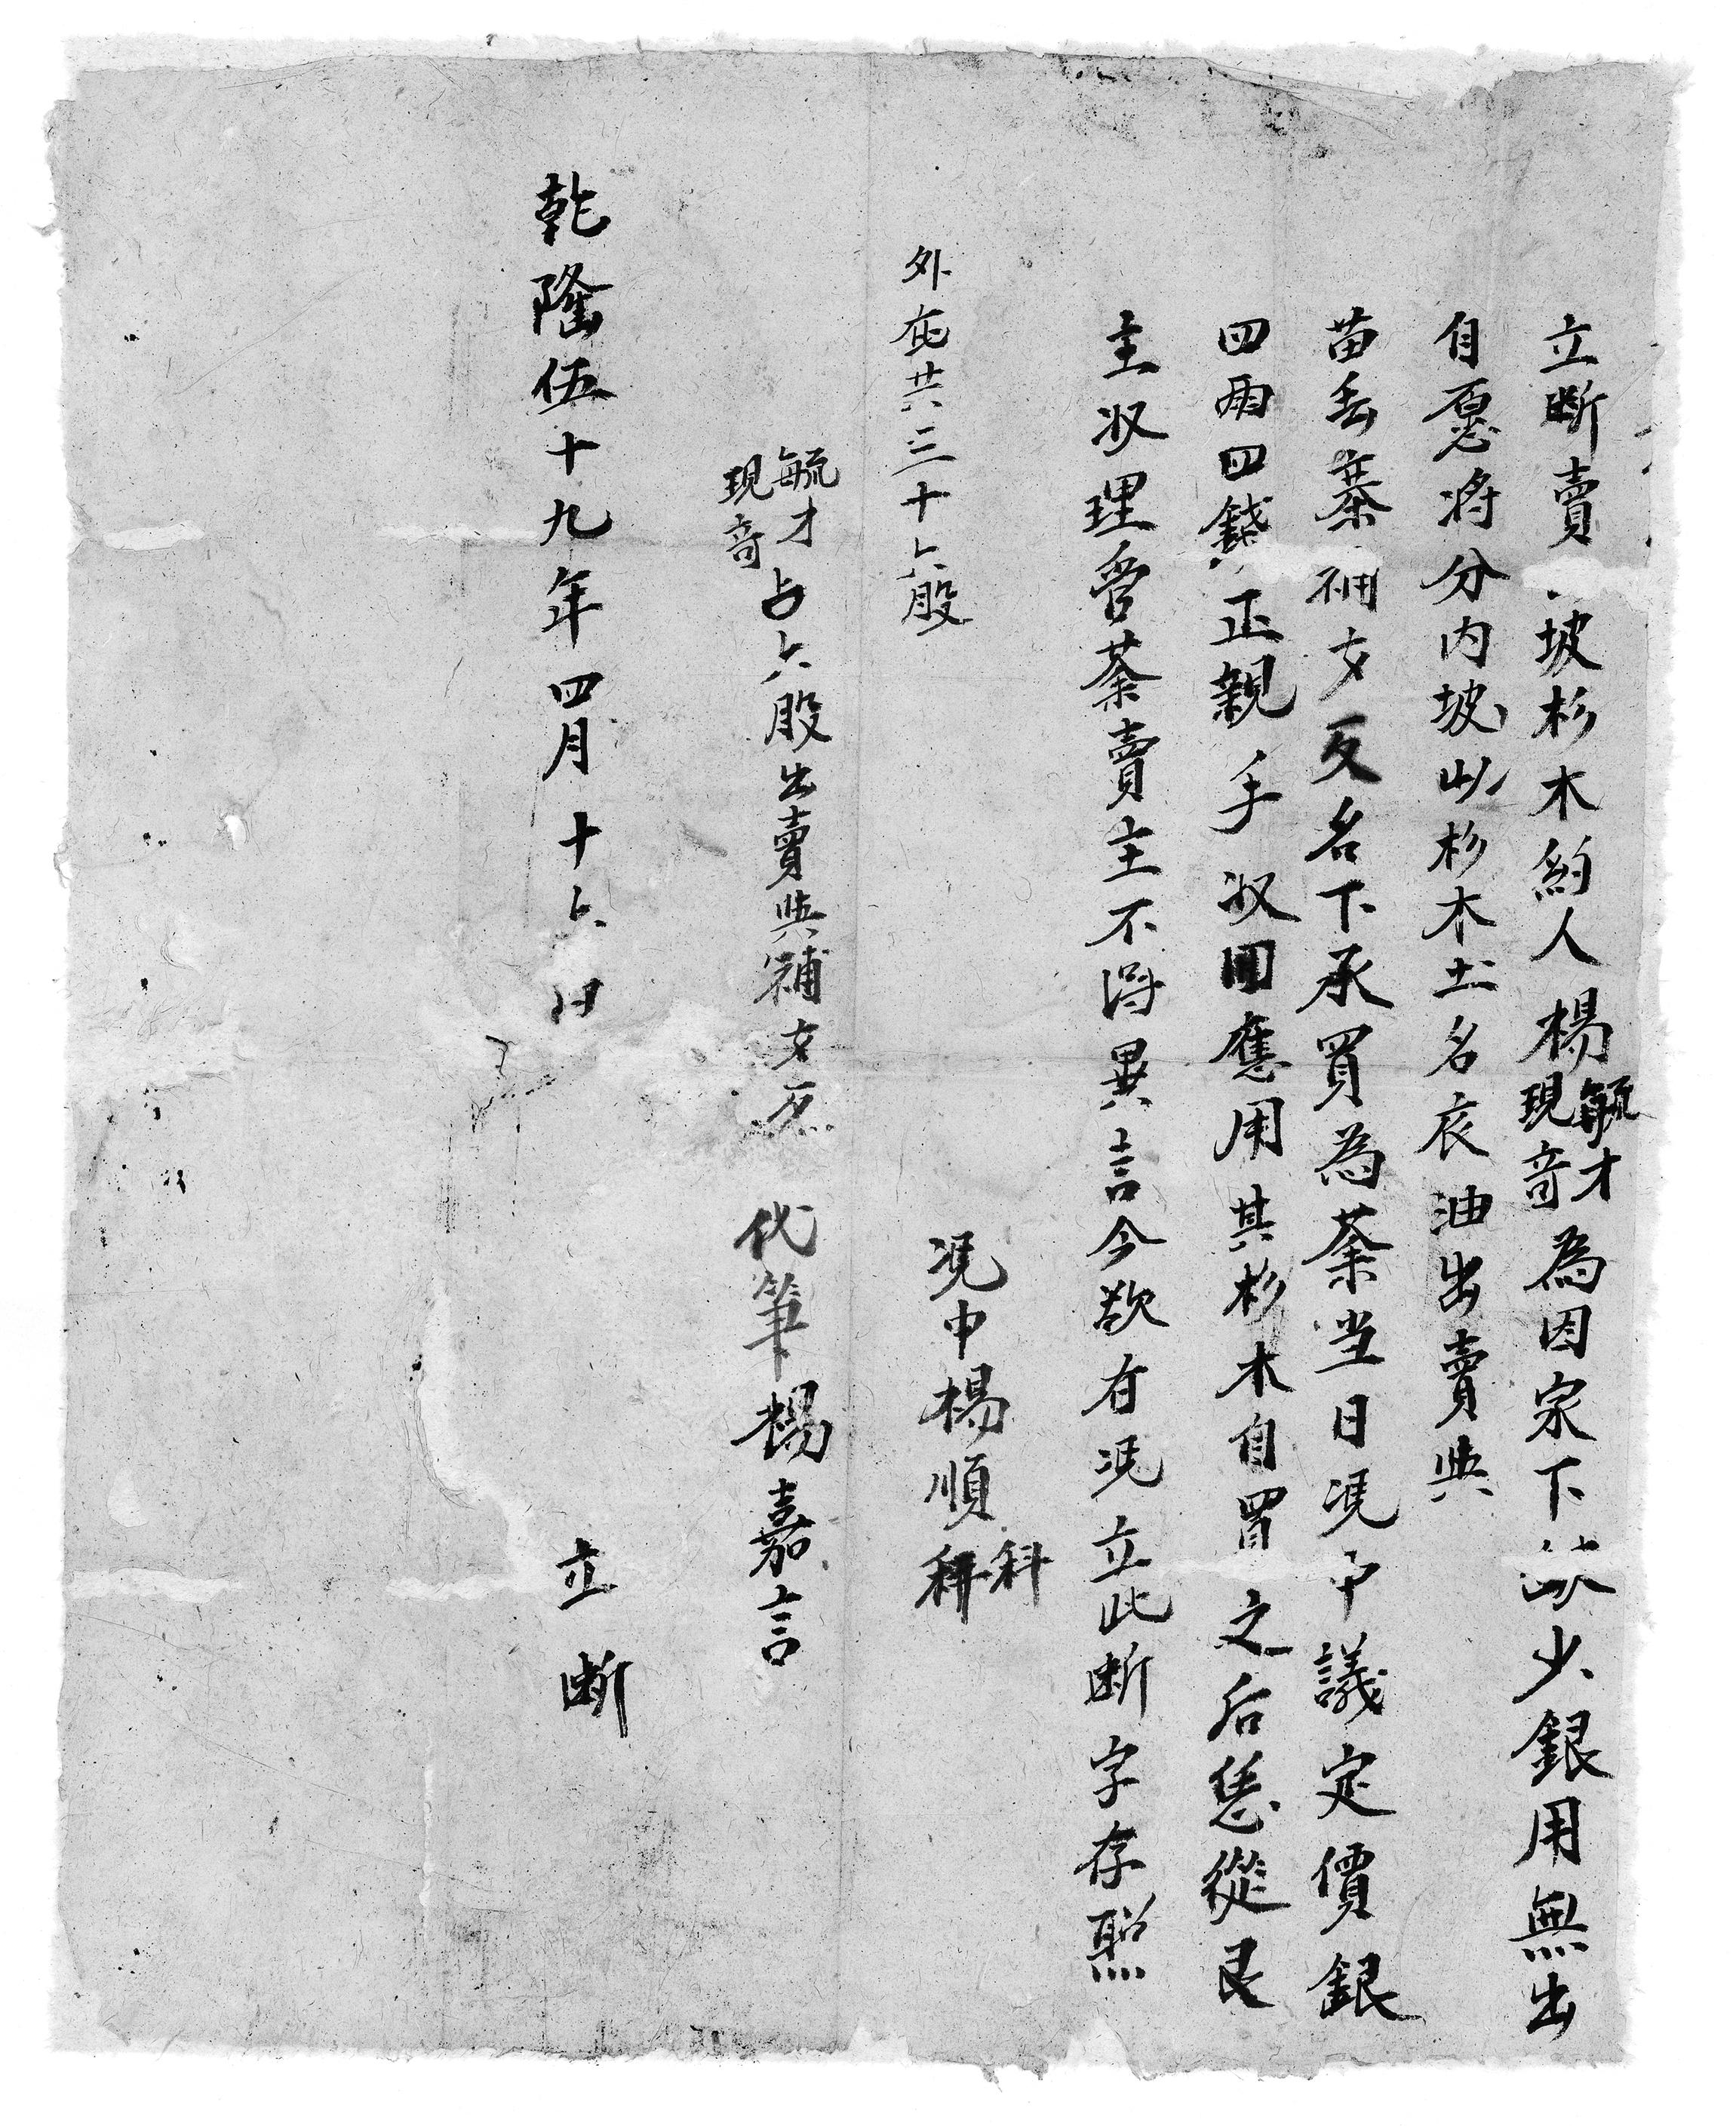 立断賣坡杉木約人楊毓才現音為因家下缺少銀用無出
自愿将分内坡此杉木土名衣油出賣與
苗丢寨補才反名下承買為業当日凴中議定價銀
四両四錢正親手收回應用其杉木自買之后恁從良
主收理管業賣主不得異言今欲有凴立此断字存照
外共三十六股
凴中楊順科
毓才現音占六股出賣與補才反
代筆楊嘉言
乾隆伍十九年四月十六日 立断